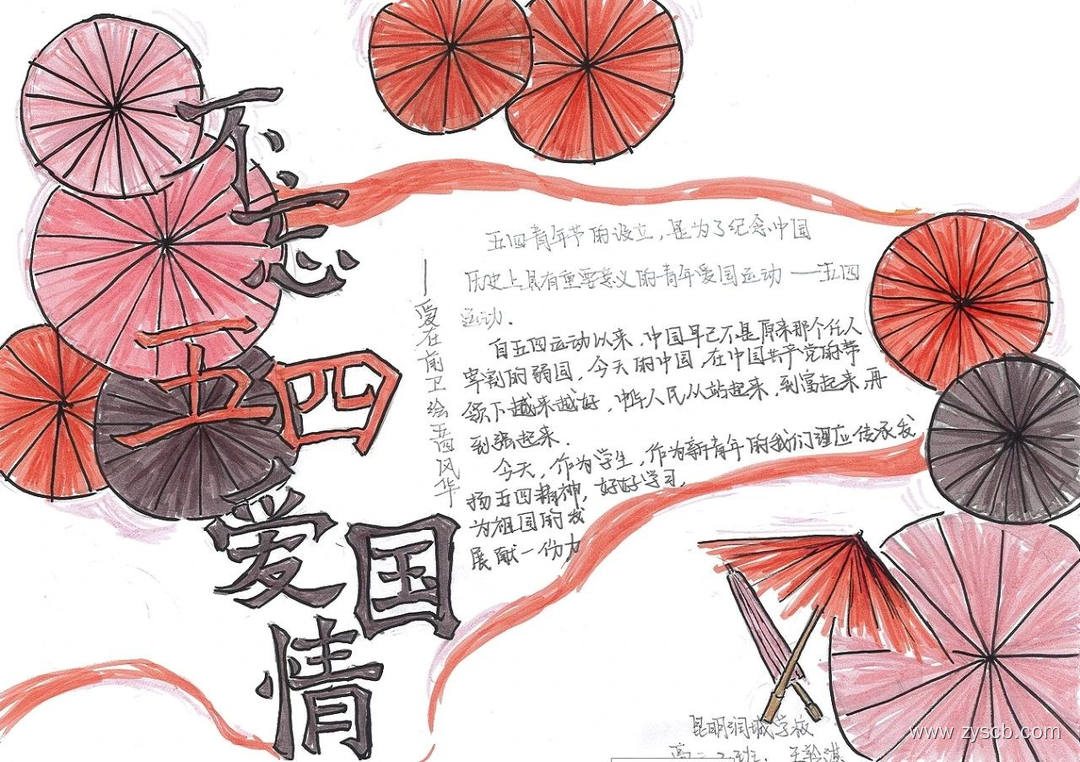 不忘
五四
爱国
情
—爱在前卫绘五四风华
五四青年节的设立，是为了纪念中国
历史上具有重要意义的青年爱国运动——五四
运动.
自五四运动以来,中国早已不是原来那个任人
宰割的弱国.今天的中国,在中国共产党的带
领下越来越好,中华人民从站起来,到富起来,再
到强起来.
今天,作为学生,作为新青年的我们理应传承发
扬五四精神,好好学习,
为祖国的发
展献一份力
昆明润城学校
高二2班.
www.zyscb.com